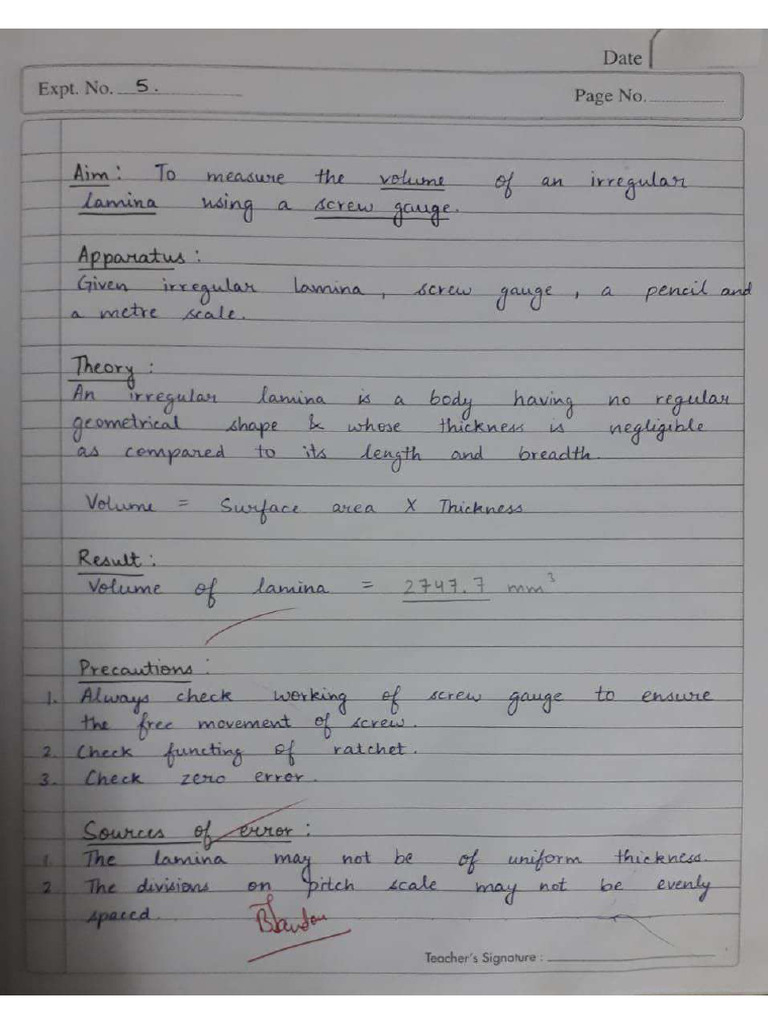 Date
Expt. No. 5.
Page No.
Aim: To measure the volume of an irregular
lamina using a screw gauge.
Apparatus:
Given irregular lamina, screw gauge, a pencil and
a metre scale.
Theory:
An irregular lamina is a body having no regular
geometrical shape & whose thickness is negligible
as compared to its length and breadth.
Volume = Surface area X Thickness
Result:
Volume of lamina = 2747.7 mm³
Precautions:
1. Always check working of screw gauge to ensure
the free movement of screw.
2. Check functing of ratchet.
3. Check zero error.
Sources of error:
1. The lamina may not be of uniform thickness.
2. The divisions on pitch scale may not be evenly
spaced.
Teacher's Signature: